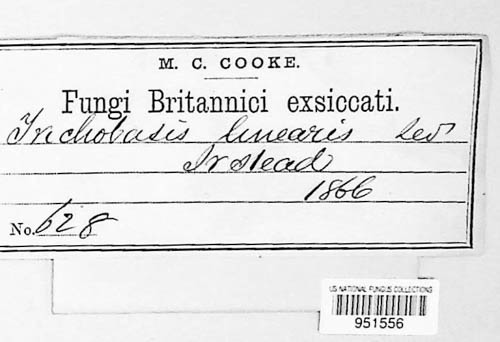 M. C. COOKE.
Fungi Britannici exsiccati.
Trichobasis linearis Lev
Irstead
1866
No. 628
US NATIONAL FUNGUS COLLECTIONS
951556